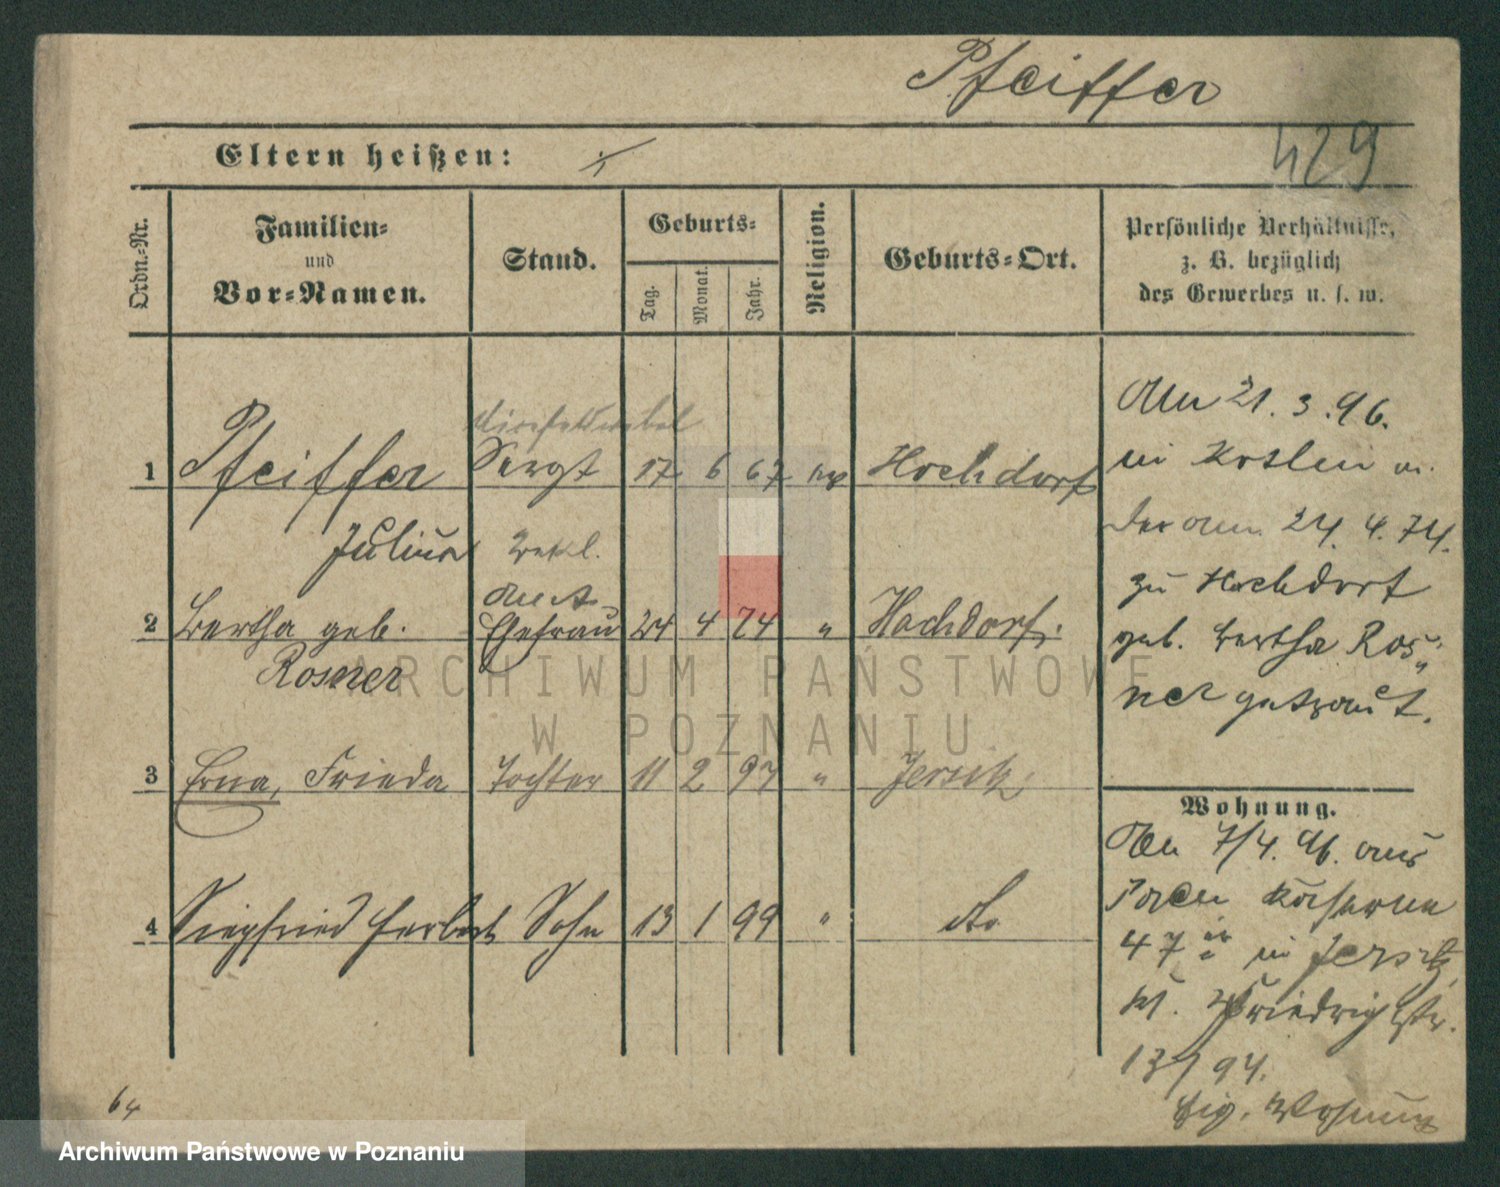 Pfeiffer
Eltern heißen: ./.
429
Ordn.=Nr.
Familien=
und
Vor=Namen.
Stand.
Geburts=
Tag.
Monat.
Jahr.
Religion.
Geburts=Ort.
Persönliche Verhältnisse,
z. B. bezüglich
des Gewerbes u. s. w.
Vicefeldwebel
1 Pfeiffer Sergt 17 6 67 Hochdorf
Julius
2 Bertha geb. Ehefrau 24 4 74 " Hochdorf.
Rosner
3 Erna, Frieda Tochter 11 2 97 " Jersitz
4 Siegfried Herbert Sohn 13 1 99 " do
Am 21.3.96.
in Kosten m.
der am 24.4.74.
zu Hochdorf
geb. Bertha Ros=
ner getraut.
Wohnung.
Am 7/4. 96. aus
Kaserne
47er in Jersitz
n. Friedrichstr.
13/94.
Wohnung
64
ARCHIWUM PAŃSTWOWE
W POZNANIU
Archiwum Państwowe w Poznaniu